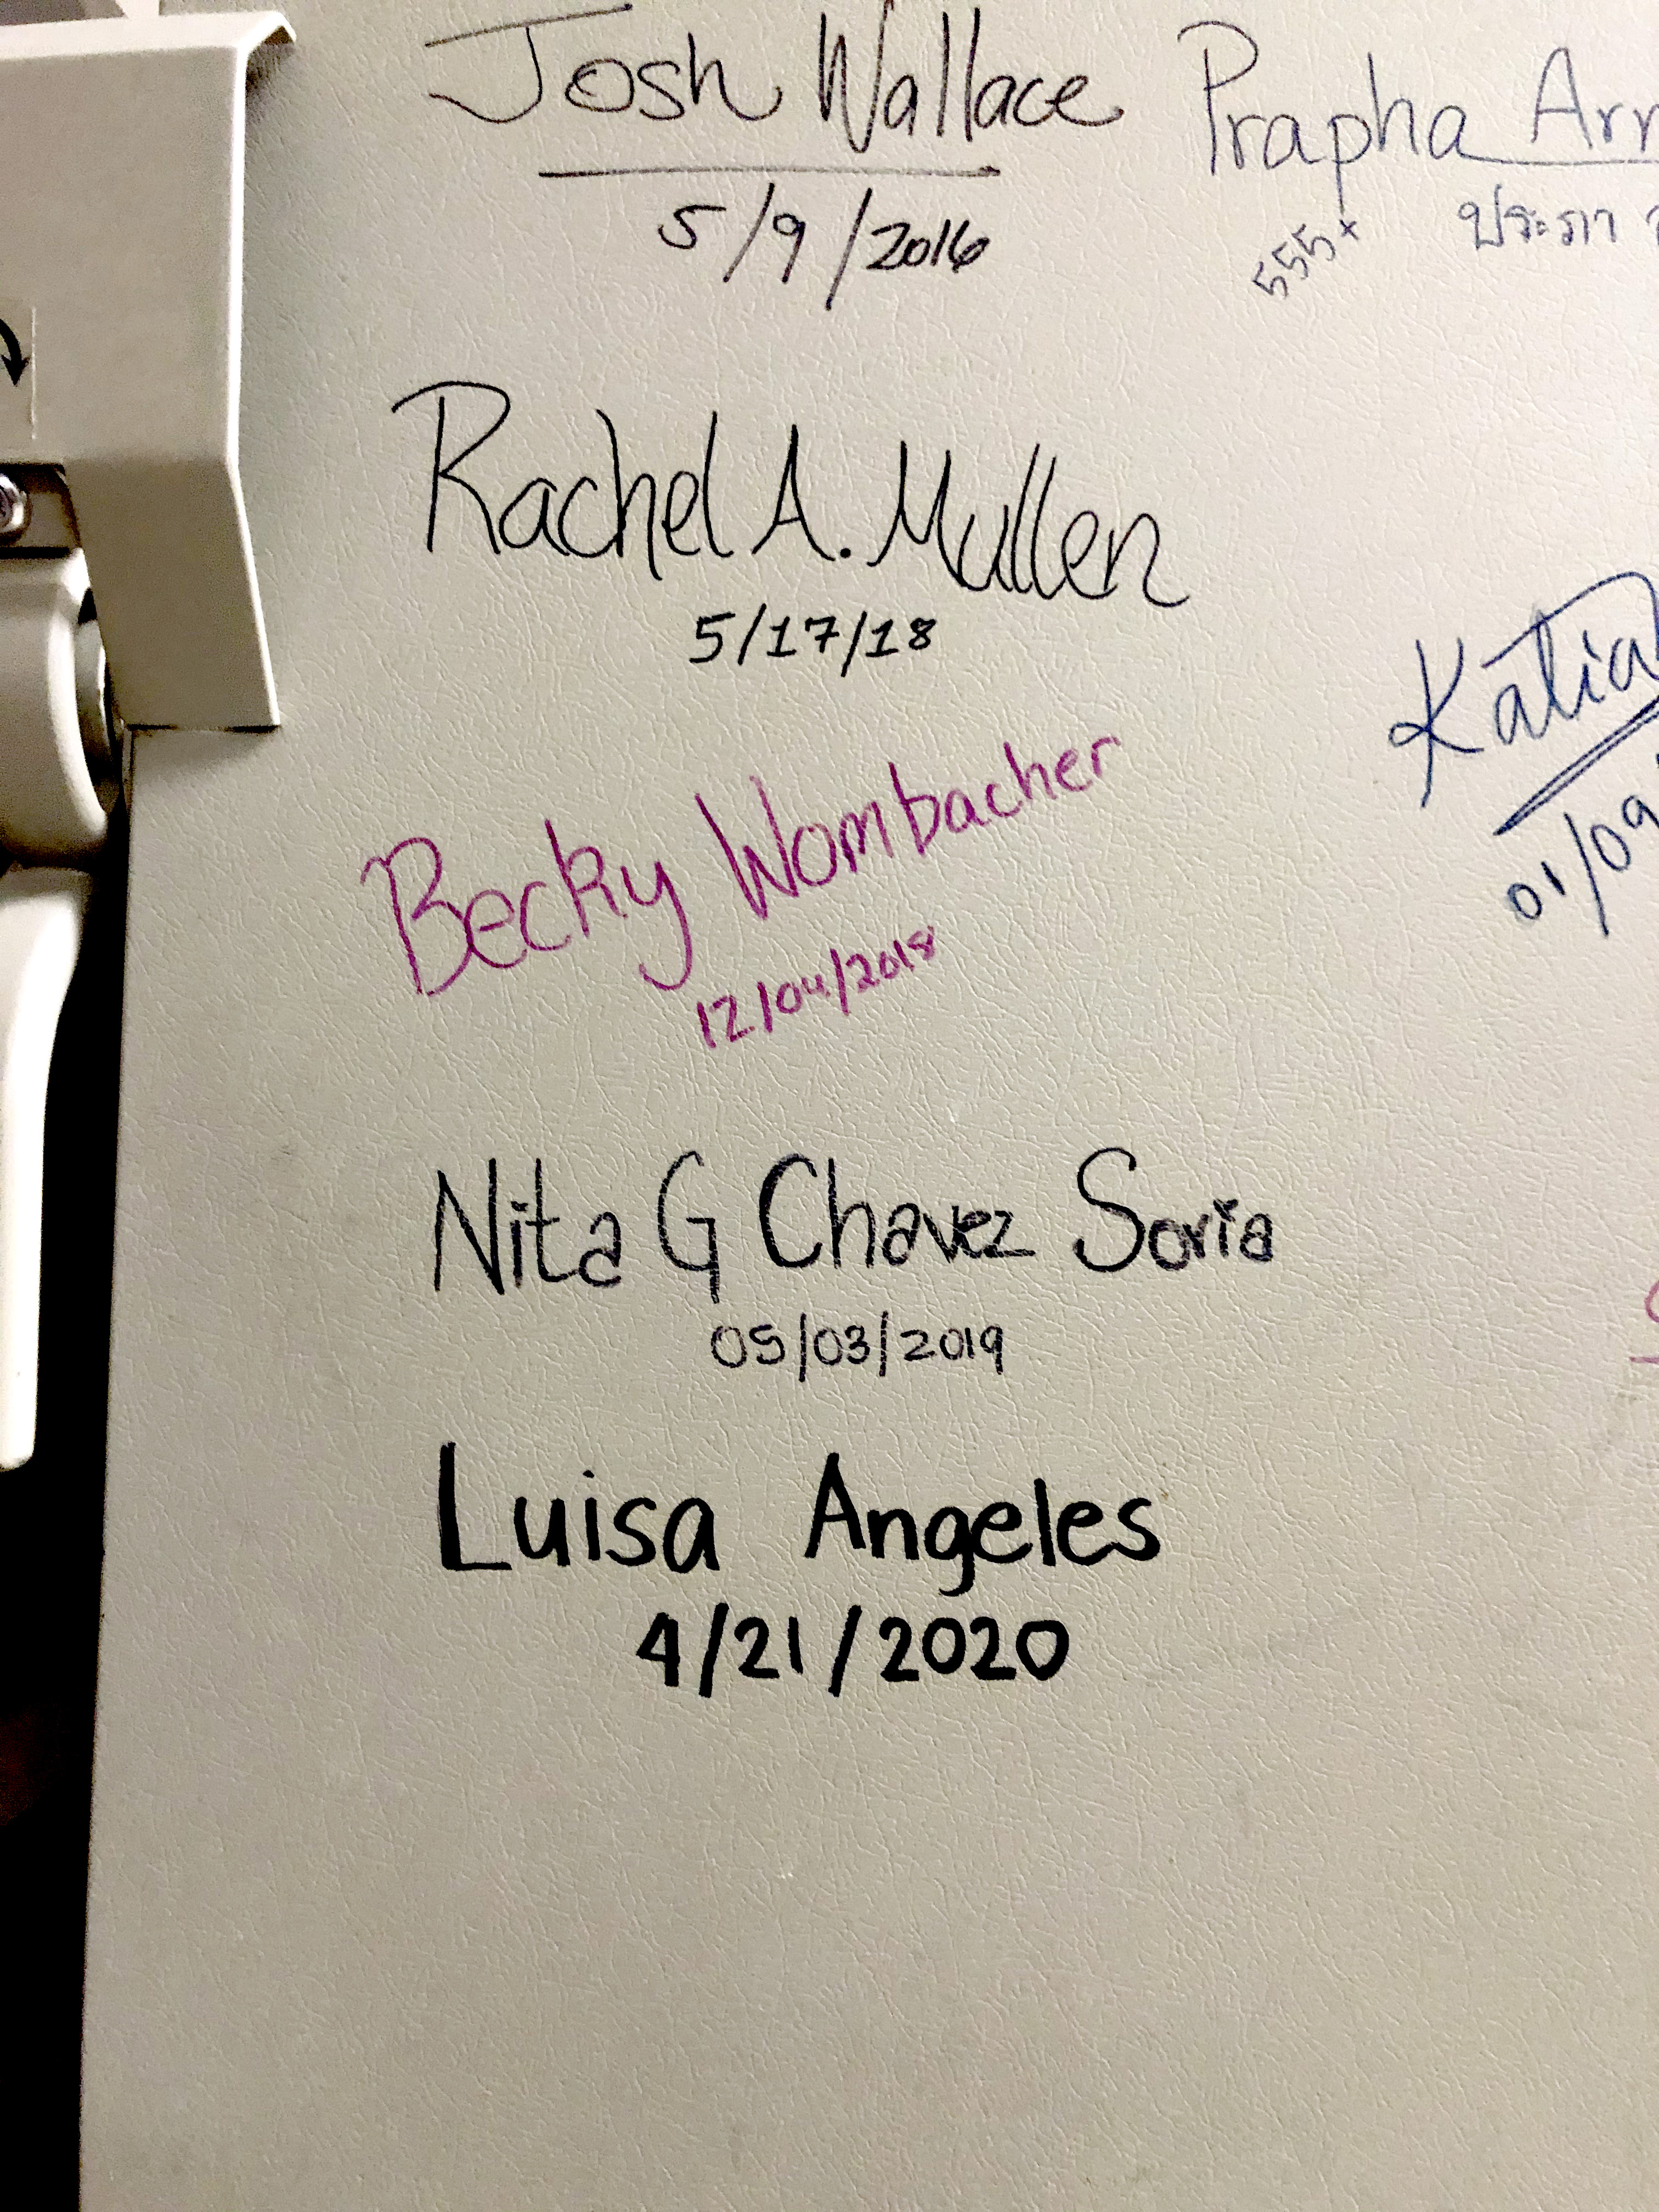 Josh Wallace
5/9/2016
Prapha
555+ ประภา
Rachel A. Mullen
5/17/18
Katia
01/09
Becky Wombacher
12/04/2018
Nita G Chavez Soria
05/03/2019
Luisa Angeles
4/21/2020